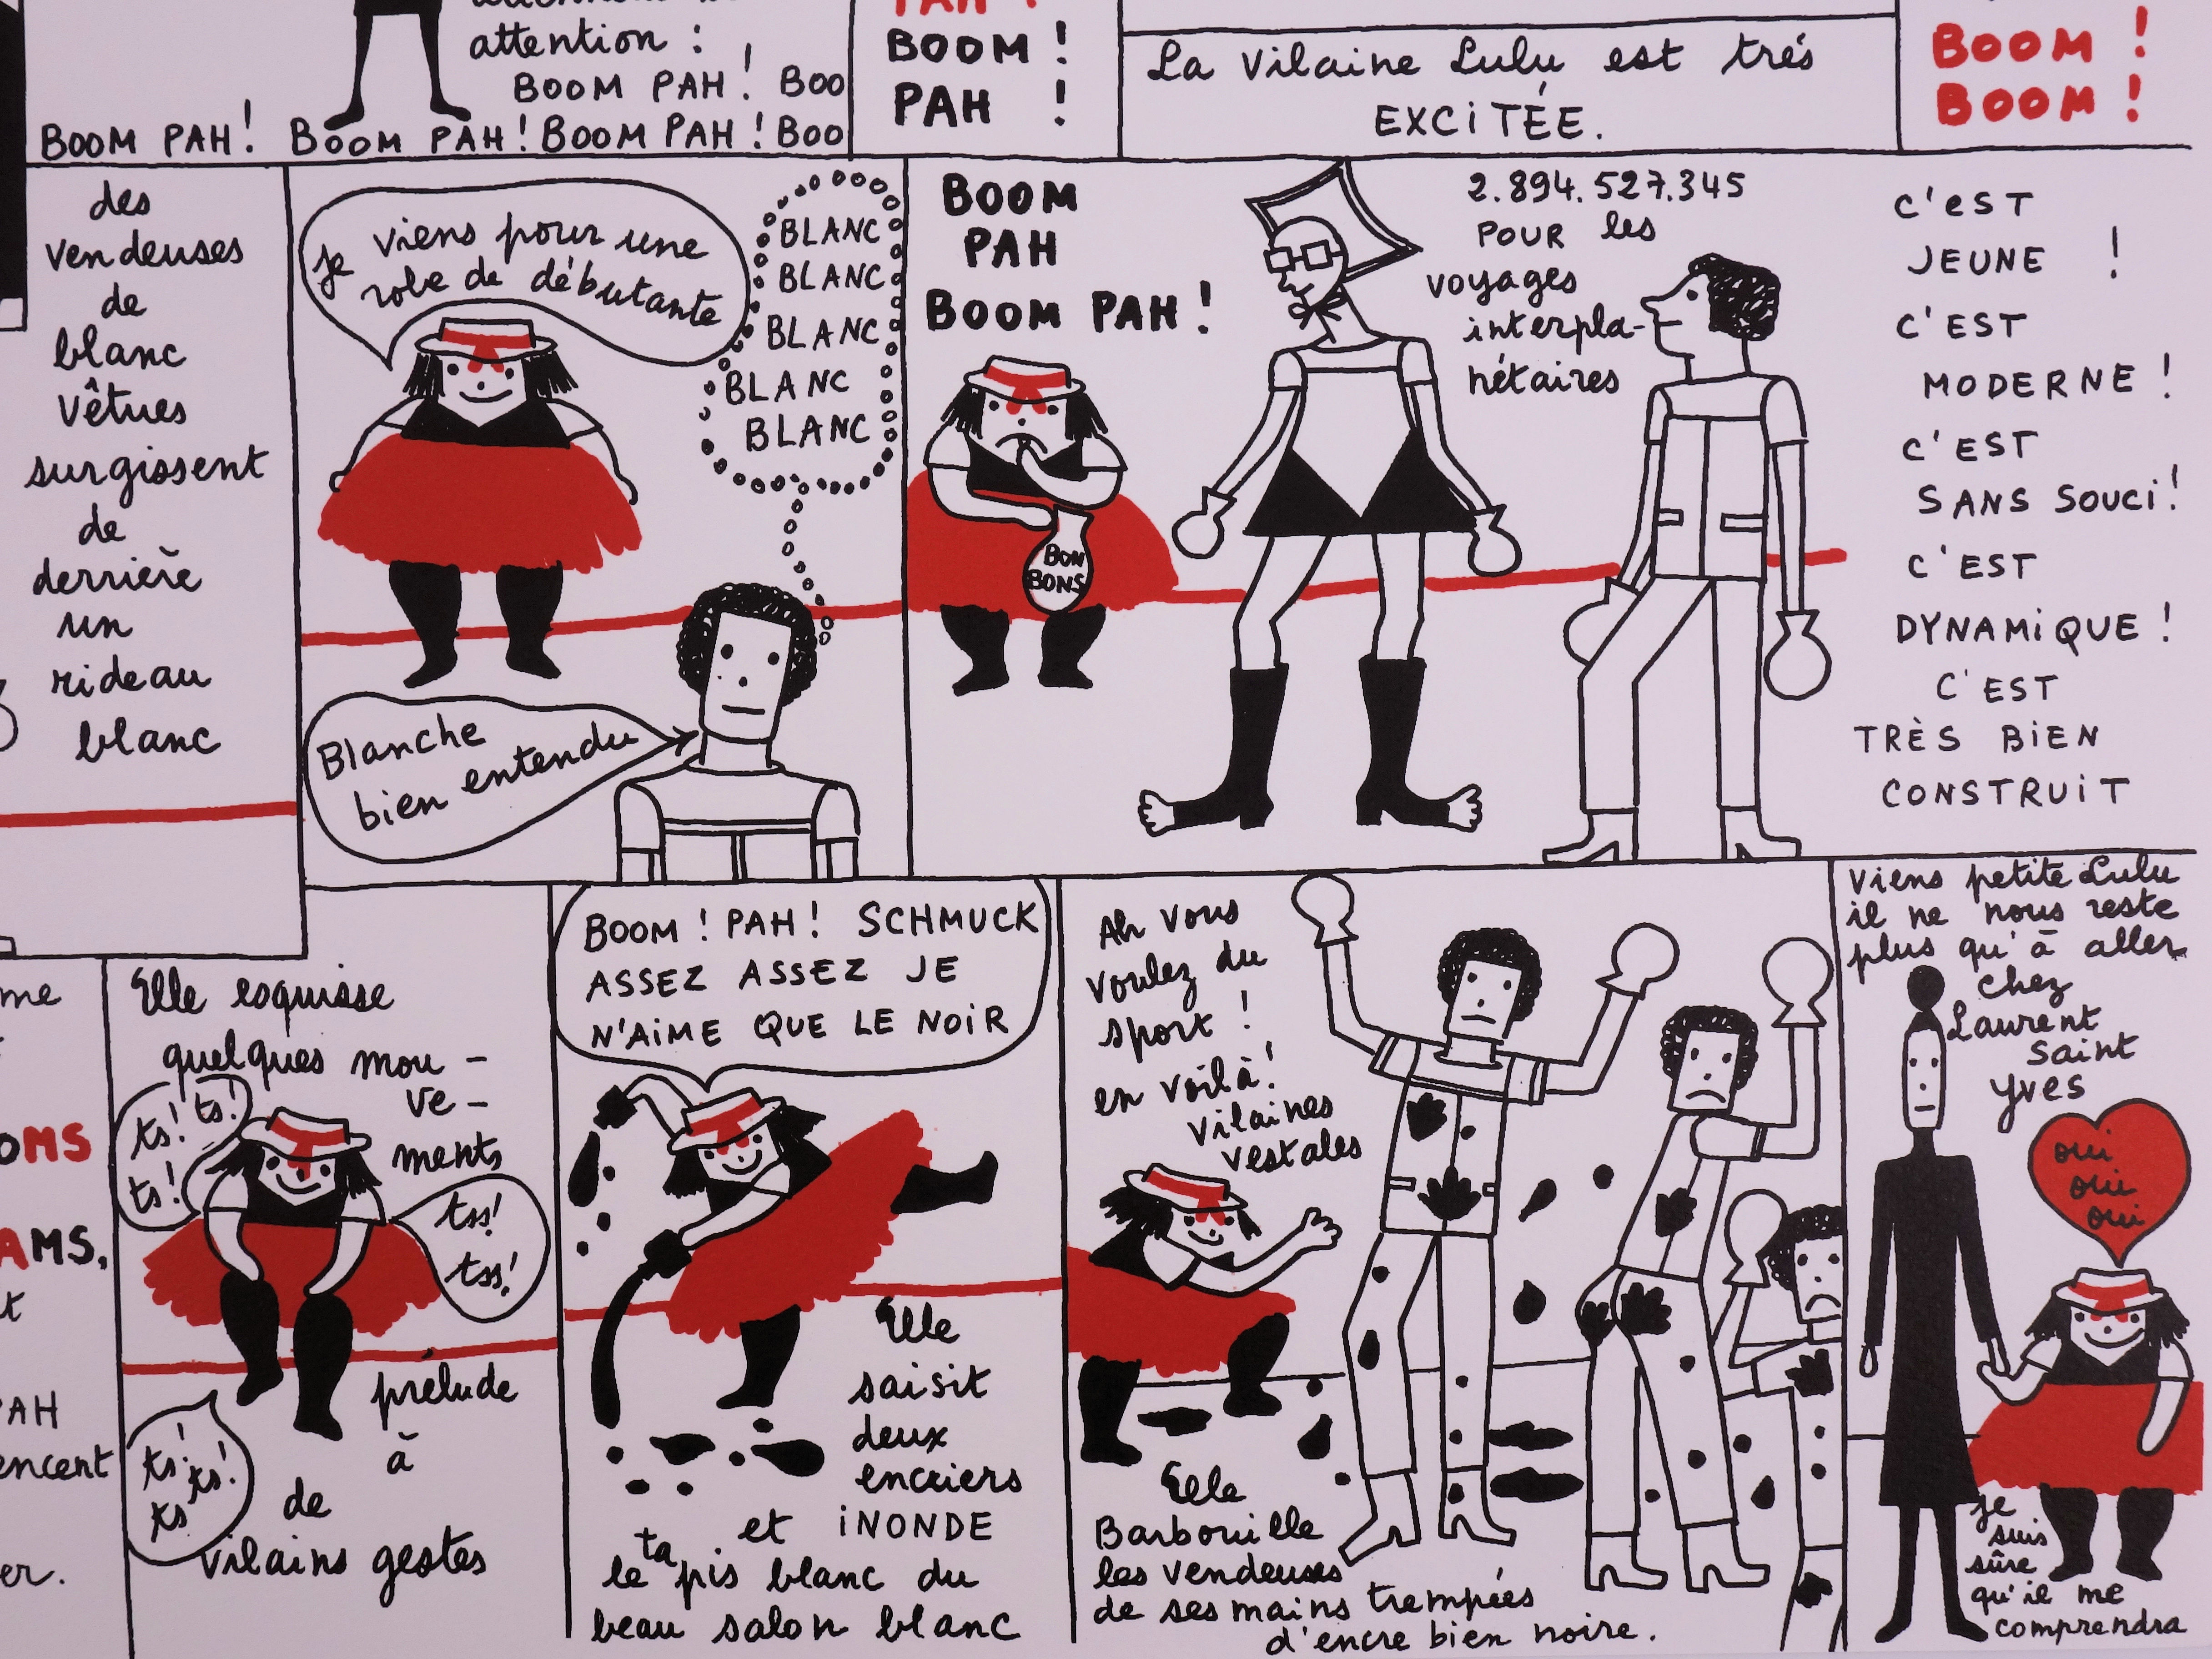 attention :
BOOM PAH ! BOO
BOOM PAH ! BOOM PAH ! BOOM PAH ! BOO
PAH !
BOOM !
PAH !
La Vilaine Lulu est trés
EXCITÉE.
BOOM !
BOOM !
des
vendeuses
de
blanc
vêtues
surgissent
de
derrière
un
rideau
blanc
je viens pour une
robe de débutante
BLANC
BLANC
BLANC
BLANC
BLANC
Blanche
bien entendu
BOOM
PAH
BOOM PAH !
BON
BONS
2.894.527.345
POUR les
voyages
interpla-
nétaires
C'EST
JEUNE !
C'EST
MODERNE !
C'EST
SANS SOUCI !
C'EST
DYNAMIQUE !
C'EST
TRÈS BIEN
CONSTRUIT
me
OMS
AMS,
t
AH
encent
er.
Elle esquisse
quelques mou -
ve -
ments
ts ! ts !
ts !
tss !
tss !
prélude
à
de
vilains gestes
ts !
ts !
ts
BOOM ! PAH ! SCHMUCK
ASSEZ ASSEZ JE
N'AIME QUE LE NOIR
Elle
saisit
deux
encriers
et INONDE
le tapis blanc du
beau salon blanc
Ah vous
voulez du
sport !
en voilà !
vilaines
vestales
Elle
Barbouille
les vendeuses
de ses mains trempées
d'encre bien noire.
Viens petite Lulu
il ne nous reste
plus qu'à aller
chez
Laurent
Saint
Yves
oui
oui
oui
je
suis
sûre
qu'il me
comprendra